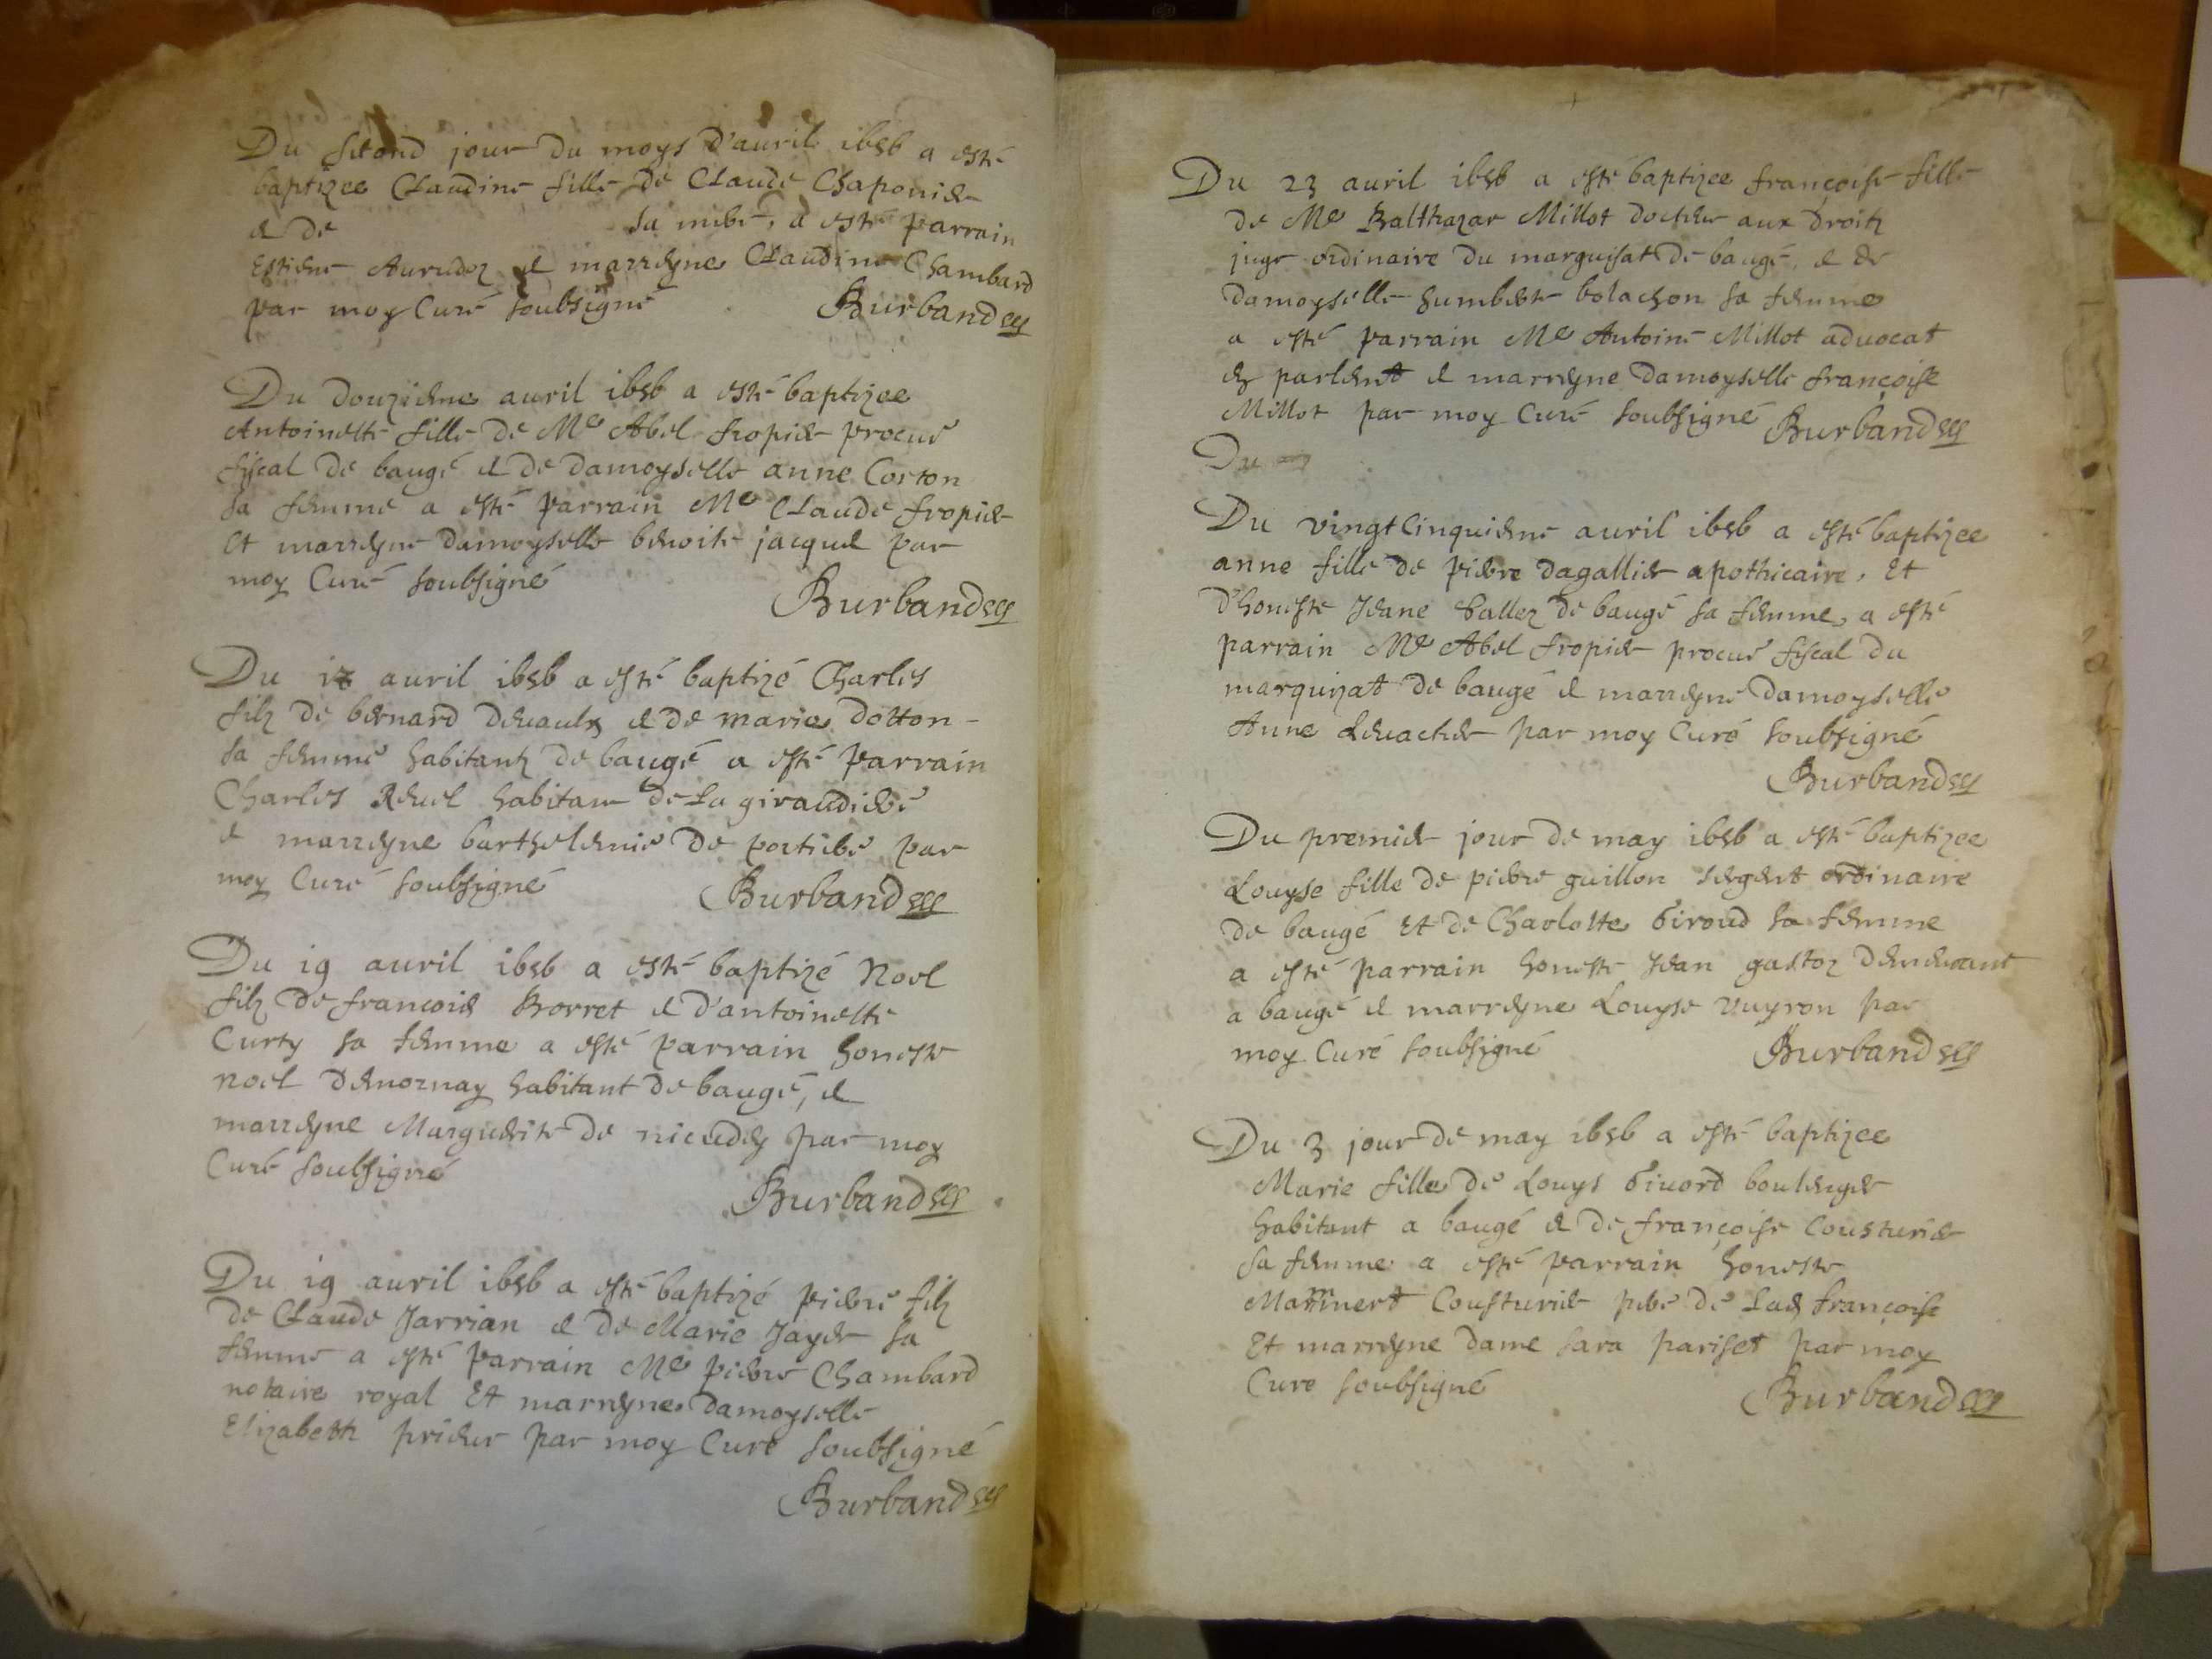 Du second jour du moys d'auril 1656 a esté
baptizee Claudine fille de Claude Chaponier
et de sa mere, a esté parrain
Estiene et marreyne Claudine Chambard
par moy Curé soubsigné Burband
Du douzieme auril 1656 a esté baptizee
Antoinette fille de Me Abel fropier procur
fiscal de baugé et de damoyselle anne Corton
sa femme a esté parrain Me Claude fropier
et marreyne damoyselle benoite jacquet par
moy Curé soubsigné
Burband
Du auril 1656 a esté baptizé Charles
filz de bernard deuaulx et de marie dotton
sa femme habitantz de baugé a esté parrain
Charles Reuel habitant de la giraudiere
et marreyne barthelemie de portiere par
moy Curé soubsigné Burband
Du 19 auril 1656 a esté baptizé Noel
filz de francois Borret et d'antoinette
Curty sa femme a esté parrain honeste
noel demornay habitant de baugé, et
marreyne Marguerite de par moy
Curé soubsigné
Burband
Du 19 auril 1656 a esté baptizé pierre filz
de Claude Jarrian et de Marie Jayer sa
femme a esté parrain Me pierre Chambard
notaire royal et marreyne damoyselle
Elizabeth prieur par moy Curé soubsigné
Burband
Du 23 auril 1656 a esté baptizee françoise fille
de Me Balthazar Millot docteur aux droitz
juge ordinaire du marquisat de baugé, et de
damoyselle humberte bolachon sa femme
a esté parrain Me Antoine Millot aduocat
en parlement et marreyne damoyselle françoise
Millot par moy Curé soubsigné Burband
Du
Du vingtcinquieme auril 1656 a esté baptizee
anne fille de pierre dagallier apothicaire, et
d'honeste Jeane ballez de baugé sa femme, a esté
parrain Me Abel fropier procur fiscal du
marquizat de baugé et marreyne damoyselle
Anne Leuacher par moy Curé soubsigné
Burband
Du premier jour de may 1656 a esté baptizee
Louyse fille de pierre guillon sergent ordinaire
de baugé et de Charlotte Giroud sa femme
a esté parrain honeste Jean gastoz demeurant
a baugé et marreyne Louyse vuyron par
moy Curé soubsigné Burband
Du 3 jour de may 1656 a esté baptizee
Marie fille de Louys Giuord boulenger
habitant a baugé et de françoise Cousturier
sa femme a esté parrain honeste
Cousturier pere de lad françoise
Et marreyne dame sara pariset par moy
Curé soubsigné Burband